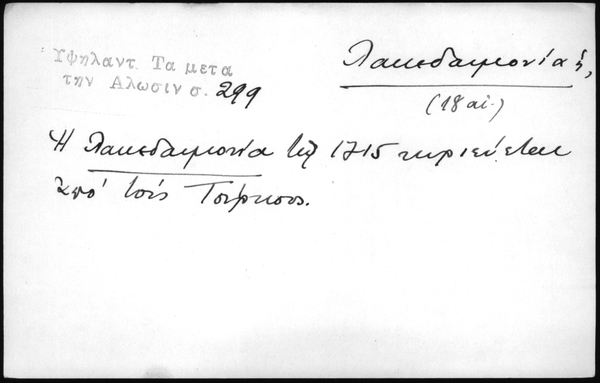 Υψηλαντ. Τα μετα
την Αλωσιν σ. 299
Λακεδαιμονία ἡ,
(18 αἰ.)
Ἡ Λακεδαιμονία τῷ 1715 κυριεύεται
ὑπὸ τοὺς Τούρκους.